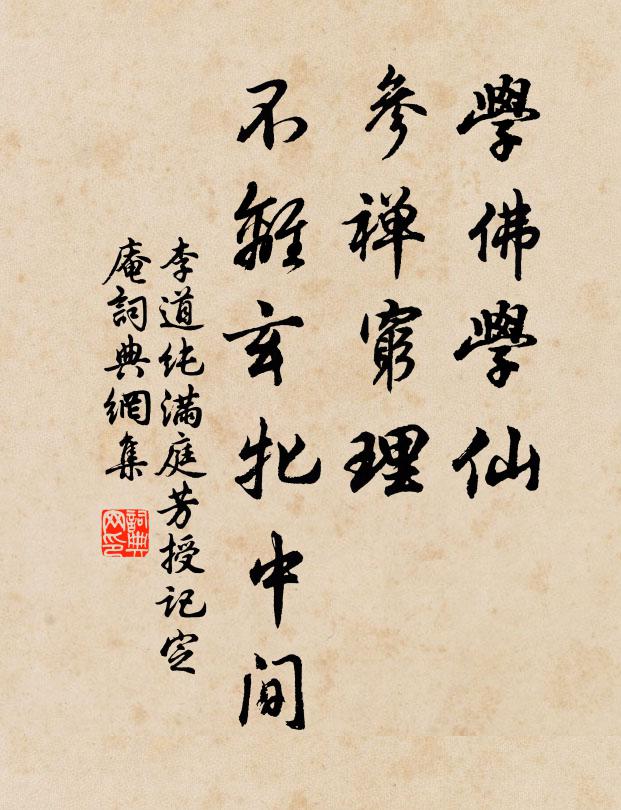 學佛學仙
參禅窮理
不離玄牝中间
李道纯滿庭芳授記定
庵詞典網集
詞典
网印